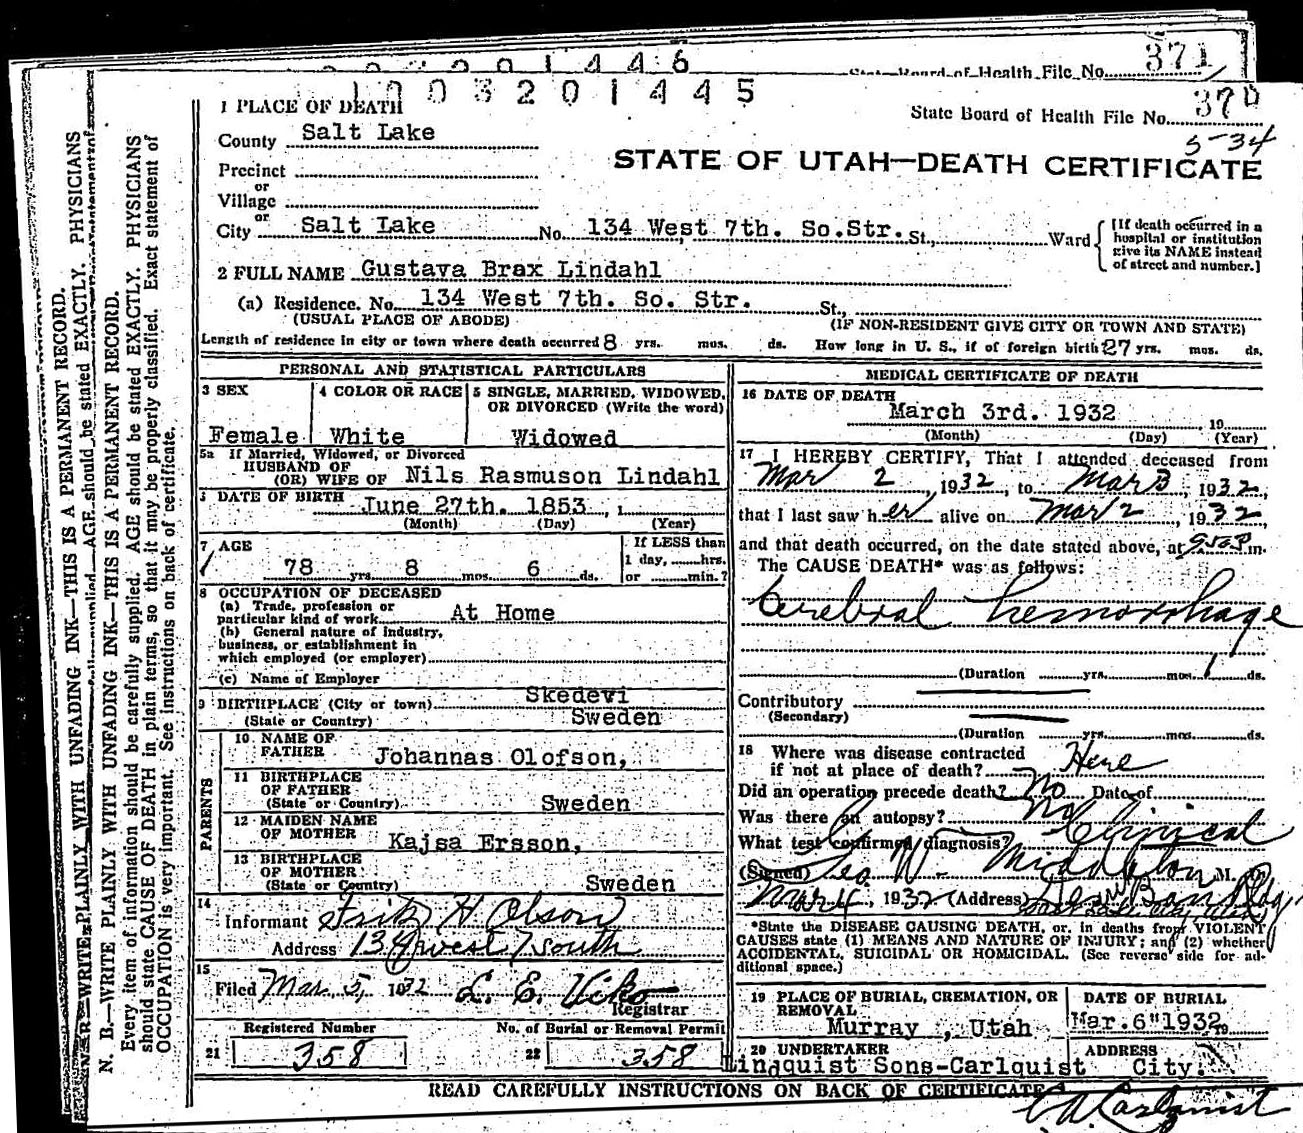 371
State Board of Health File No.
1003201445
1 PLACE OF DEATH
State Board of Health File No. 370
5-34
County Salt Lake
STATE OF UTAH—DEATH CERTIFICATE
Precinct
or
Village
or
City Salt Lake No. 134 West 7th. So.Str. St., Ward
[If death occurred in a
hospital or institution
give its NAME instead
of street and number.]
2 FULL NAME Gustava Brax Lindahl
(a) Residence. No. 134 West 7th. So. Str. St.,
(USUAL PLACE OF ABODE) (IF NON-RESIDENT GIVE CITY OR TOWN AND STATE)
Length of residence in city or town where death occurred 8 yrs. mos. ds. How long in U. S., if of foreign birth 27 yrs. mos. ds.
PERSONAL AND STATISTICAL PARTICULARS
3 SEX
Female
4 COLOR OR RACE
White
5 SINGLE, MARRIED, WIDOWED,
OR DIVORCED (Write the word)
Widowed
5a If Married, Widowed, or Divorced
HUSBAND OF
(OR) WIFE OF Nils Rasmuson Lindahl
DATE OF BIRTH June 27th. 1853
(Month) (Day) (Year)
7 AGE
78 yrs. 8 mos. 6 ds.
If LESS than
1 day, hrs.
or min.?
8 OCCUPATION OF DECEASED
(a) Trade, profession or
particular kind of work At Home
(b) General nature of industry,
business, or establishment in
which employed (or employer)
(c) Name of Employer
9 BIRTHPLACE (City or town) Skedevi
(State or Country) Sweden
PARENTS
10 NAME OF
FATHER Johannas Olofson,
11 BIRTHPLACE
OF FATHER
(State or Country) Sweden
12 MAIDEN NAME
OF MOTHER Kajsa Ersson,
13 BIRTHPLACE
OF MOTHER
(State or Country) Sweden
14
Informant Fritz H Olson
Address 134 west 7 south
15
Filed Mar. 5, 1932 L. E. Viko
Registrar
Registered Number
21 358
No. of Burial or Removal Permit
22 358
MEDICAL CERTIFICATE OF DEATH
16 DATE OF DEATH
March 3rd. 1932 19
(Month) (Day) (Year)
17 I HEREBY CERTIFY, That I attended deceased from
Mar 2, 1932, to Mar 3, 1932,
that I last saw her alive on Mar 2, 1932,
and that death occurred, on the date stated above, at m.
The CAUSE DEATH* was as follows:
Cerebral hemorrhage
(Duration yrs. mos. 1 ds.
Contributory
(Secondary)
(Duration yrs. mos. ds.
18 Where was disease contracted
if not at place of death? Here
Did an operation precede death? No Date of
Was there an autopsy? No
What test confirmed diagnosis? Clinical
(Signed) Geo. W. Middleton M. D.
Mar 4, 1932 (Address) Bldg.
*State the DISEASE CAUSING DEATH, or, in deaths from VIOLENT
CAUSES state (1) MEANS AND NATURE OF INJURY; and (2) whether
ACCIDENTAL, SUICIDAL OR HOMICIDAL. (See reverse side for ad-
ditional space.)
19 PLACE OF BURIAL, CREMATION, OR
REMOVAL
Murray, Utah
DATE OF BURIAL
Mar. 6" 1932
20 UNDERTAKER
Lindquist Sons-Carlquist
ADDRESS
City.
READ CAREFULLY INSTRUCTIONS ON BACK OF CERTIFICATE
C A Carlquist
N. B.—WRITE PLAINLY WITH UNFADING INK—THIS IS A PERMANENT RECORD.
Every item of information should be carefully supplied. AGE should be stated EXACTLY. PHYSICIANS
should state CAUSE OF DEATH in plain terms, so that it may be properly classified. Exact statement of
OCCUPATION is very important. See instructions on back of certificate.